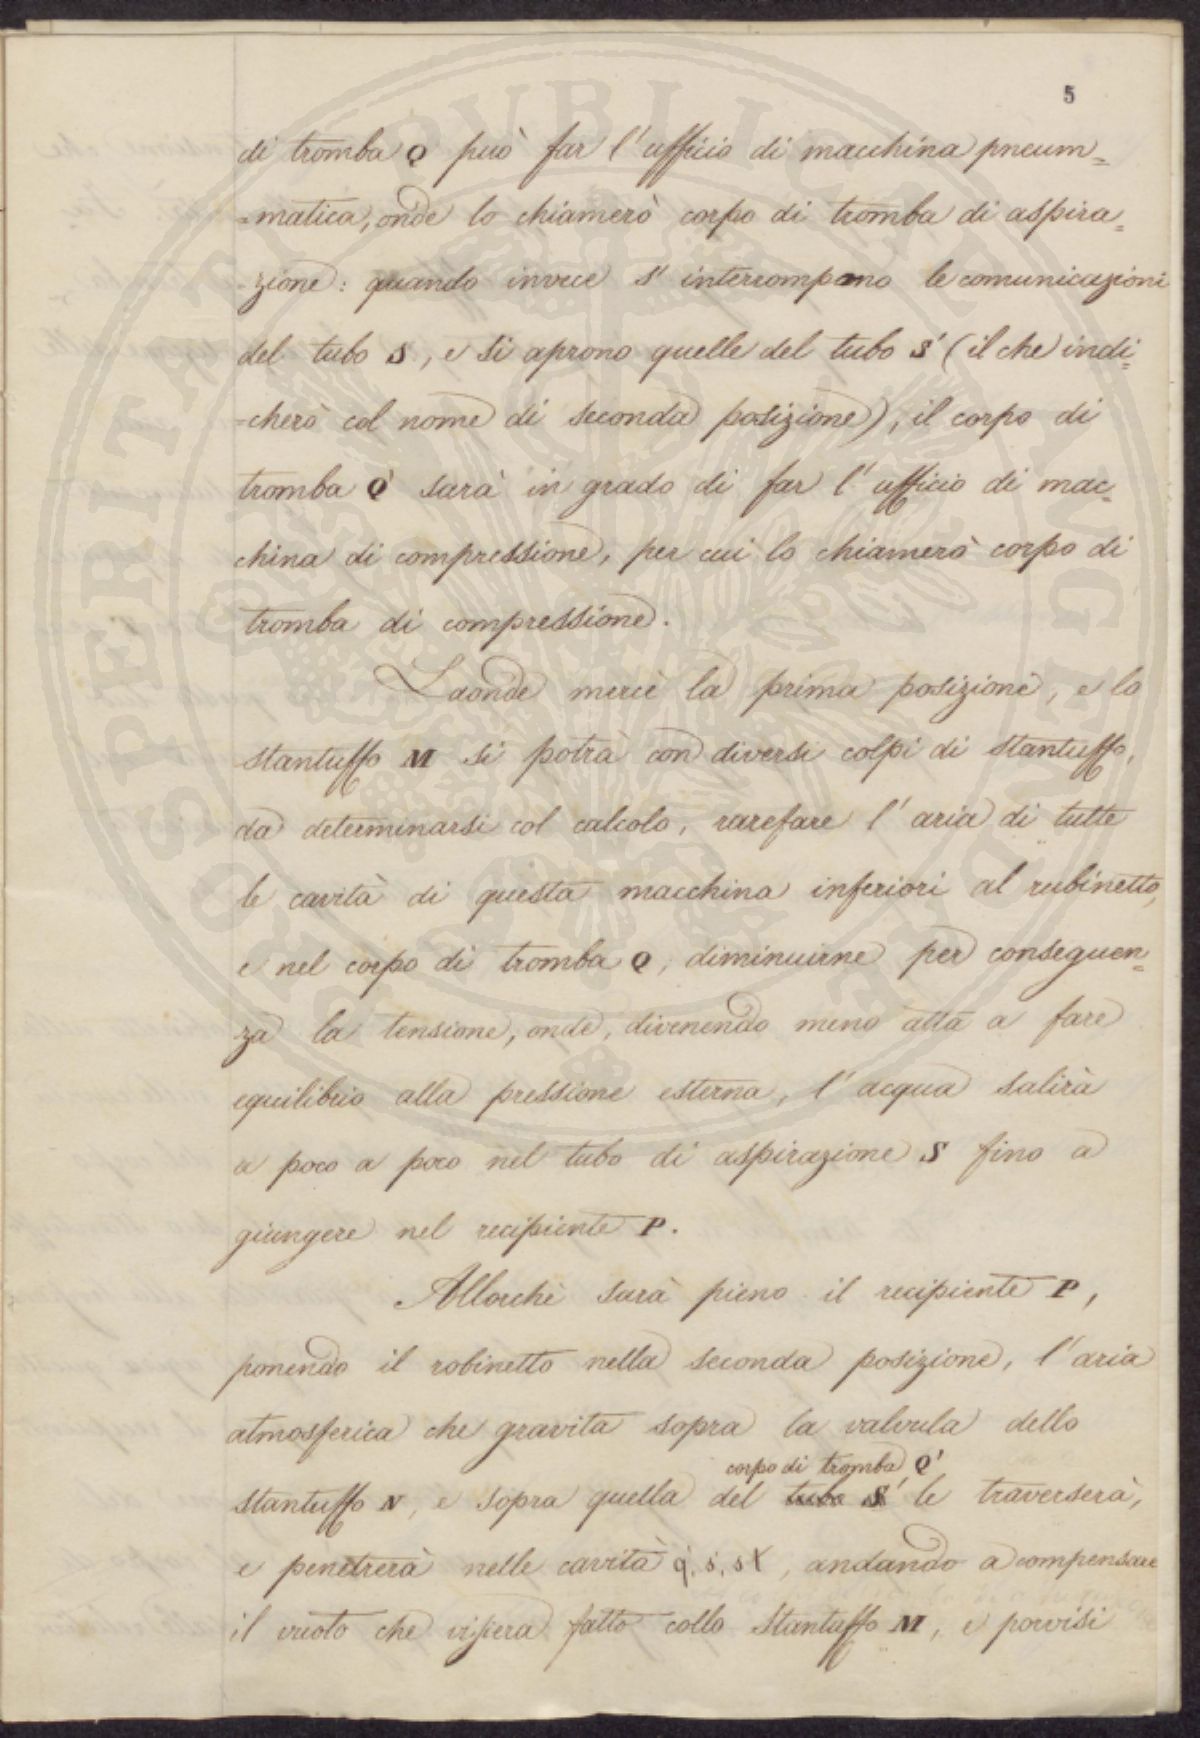 5
di tromba Q può far l'ufficio di macchina pneum=
=matica, onde lo chiamerò corpo di tromba di aspira=
=zione: quando invece s'interrompono le comunicazioni
del tubo S, e si aprono quelle del tubo S' (il che indi=
=cherò col nome di seconda posizione), il corpo di
tromba Q' sarà in grado di far l'ufficio di mac=
china di compressione, per cui lo chiamerò corpo di
tromba di compressione.
Laonde mercè la prima posizione, e lo
stantuffo M si potrà con diversi colpi di stantuffo,
da determinarsi col calcolo, rarefare l'aria di tutte
le cavità di questa macchina inferiori al rubinetto,
e nel corpo di tromba Q, diminuirne per conseguen=
za la tensione, onde, divenendo meno atta a fare
equilibrio alla pressione esterna, l'acqua salirà
a poco a poco nel tubo di aspirazione S fino a
giungere nel recipiente P.
Allorchè sarà pieno il recipiente P,
ponendo il robinetto nella seconda posizione, l'aria
atmosferica che gravita sopra la valvula dello
corpo di tromba Q'
stantuffo N, e sopra quella del tubo S' le traverserà,
e penetrerà nelle cavità q', s', st, andando a compensare
il vuoto che visiera fatto collo stantuffo M, e porvisi
PROSPERITATI PUBLICAE AUGENDAE